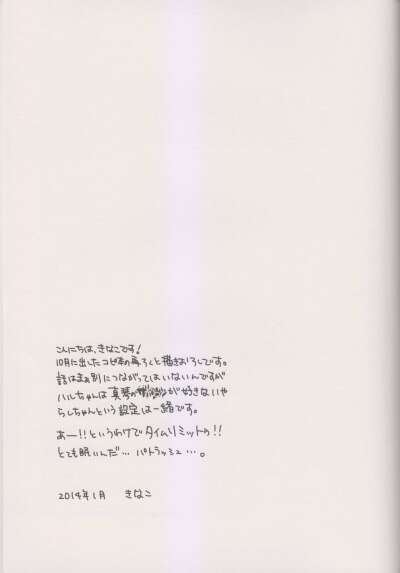 こんにちは、きなこです!
10月に出したコピ本の再ろくと描きおろしです。
話はまぁ別につながってはいないんですが
ハルちゃんは真琴の が好きないや
らしちゃんという設定は一緒です。
あー!!というわけでタイムリミットの!!
とても眠いんだ…パトラッシュ…。
2014年1月 きなこ